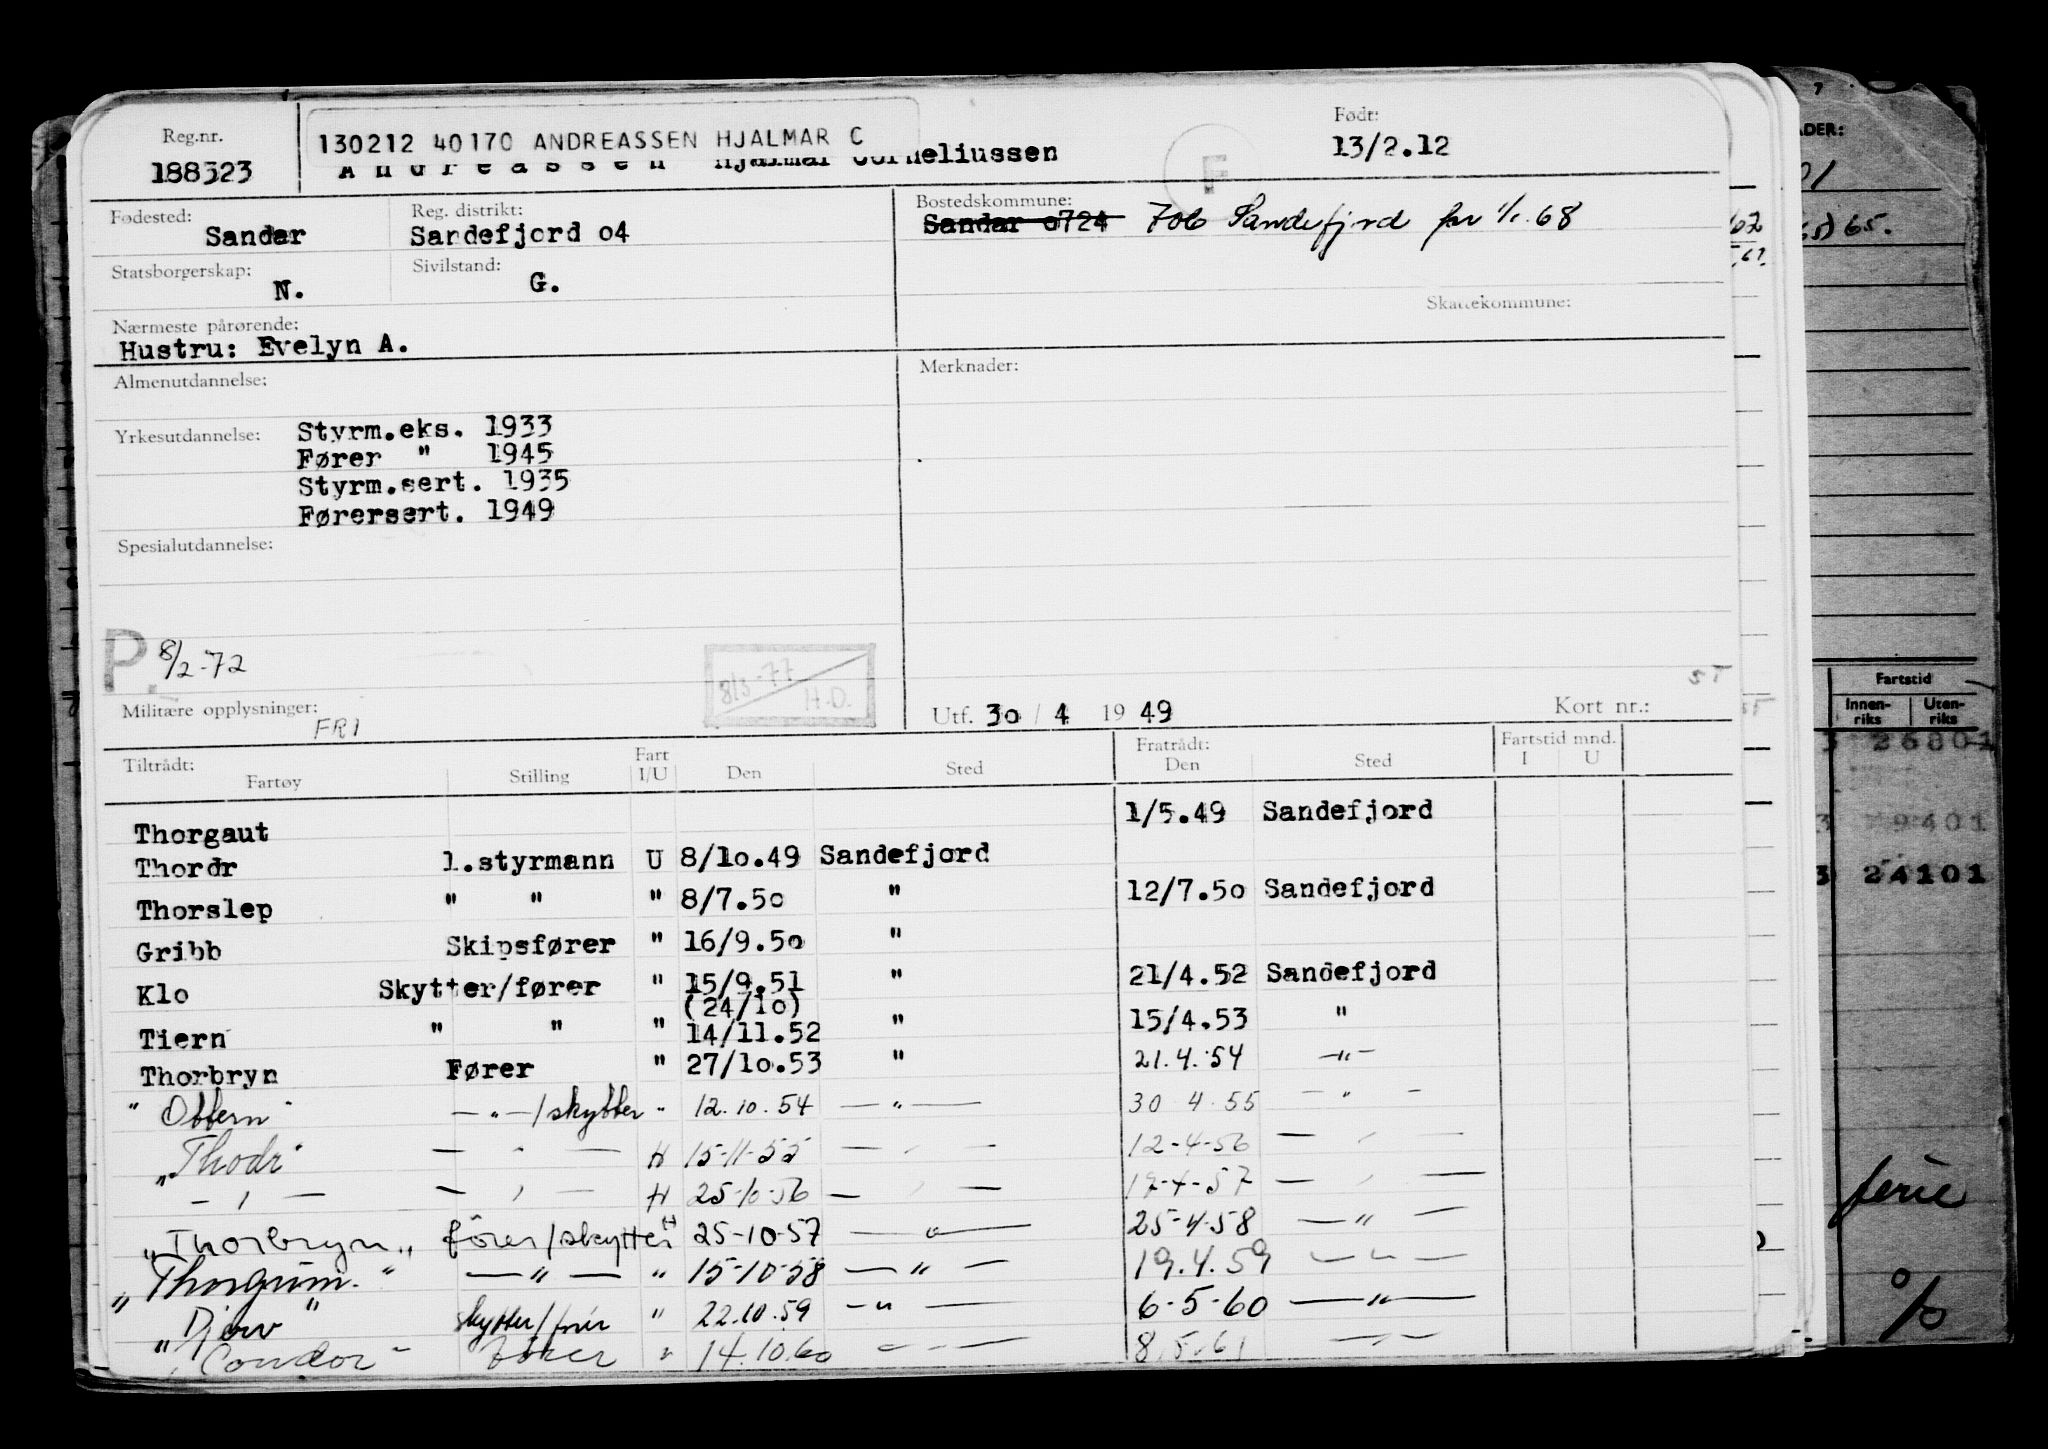 Reg.nr.
188523
130212 40170 ANDREASSEN HJALMAR C
Andreassen Hjalmar Corneliussen
F
Født:
13/2.12
Fødested:
Sandar
Reg. distrikt:
Sandefjord o4
Bostedskommune:
Sandar o724 706 Sandefjord før 1/1.68
Statsborgerskap:
N.
Sivilstand:
G.
Skattekommune:
Nærmeste pårørende:
Hustru: Evelyn A.
Almenutdannelse:
Merknader:
Yrkesutdannelse: Styrm.eks. 1933
Fører " 1945
Styrm.sert. 1935
Førersert. 1949
Spesialutdannelse:
P. 8/2-72
8/3-77
H.O.
Militære opplysninger:
FRI
Utf. 30 / 4 19 49
Kort nr.:
Tiltrådt:
Fartøy Stilling Fart I/U Den Sted Fratrådt: Den Sted Fartstid mnd. I U
Thorgaut 1/5.49 Sandefjord
Thordr 1.styrmann U 8/1o.49 Sandefjord
Thorslep " " " 8/7.5o " 12/7.5o Sandefjord
Gribb Skipsfører " 16/9.5o "
Klo Skytter/fører " 15/9.51 " 21/4.52 Sandefjord
(24/1o)
Tiern " " " 14/11.52 " 15/4.53 "
Thorbryn Fører " 27/1o.53 " 21.4.54 —"—
"Ottern" —"—/skytter " 12.10.54 —"— 30 4.55 — " —
"Thodr" — " — H 15-11-55 — " — 12-4-56 — " —
— " — — " — H 25-10-56 — " — 17-4-57 — " —
"Thorbryn" fører/skytter H 25-10-57 —"— 25-4-58 —"—
"Thorgrim" —"— " 15-10-58 —"— 19.4.59 —"—
"Djerv" skytter/fører " 22.10.59 —"— 6-5-60 —"—
"Condor" fører " 14.10.60 —"— 8.5.61 —"—
65.
Fartstid
Innen-riks Uten-riks
26801
9401
24101
ferie
%